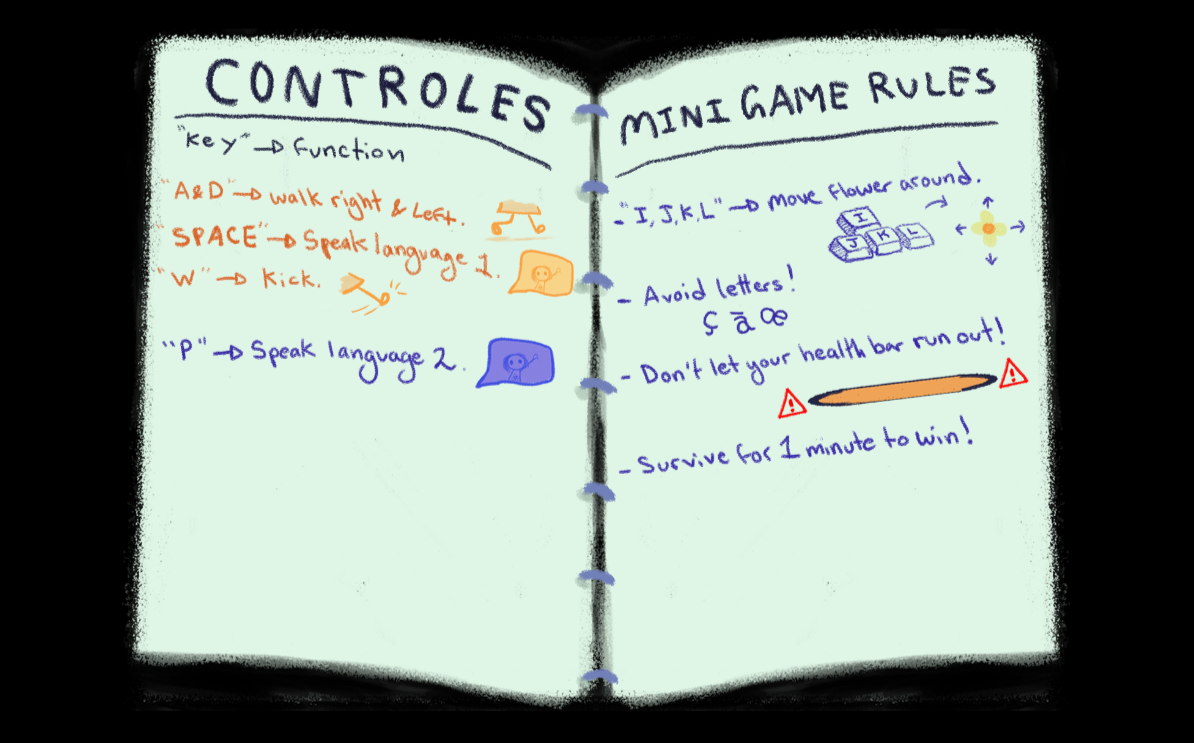 CONTROLES
"Key" → Function
"A&D" → walk right & Left.
"SPACE" → Speak language 1.
"W" → Kick.
"P" → Speak language 2.
MINI GAME RULES
- "I, J, K, L" → move flower around.
I
J K L
- Avoid letters!
ç ã œ
- Don't let your health bar run out!
- Survive for 1 minute to win!